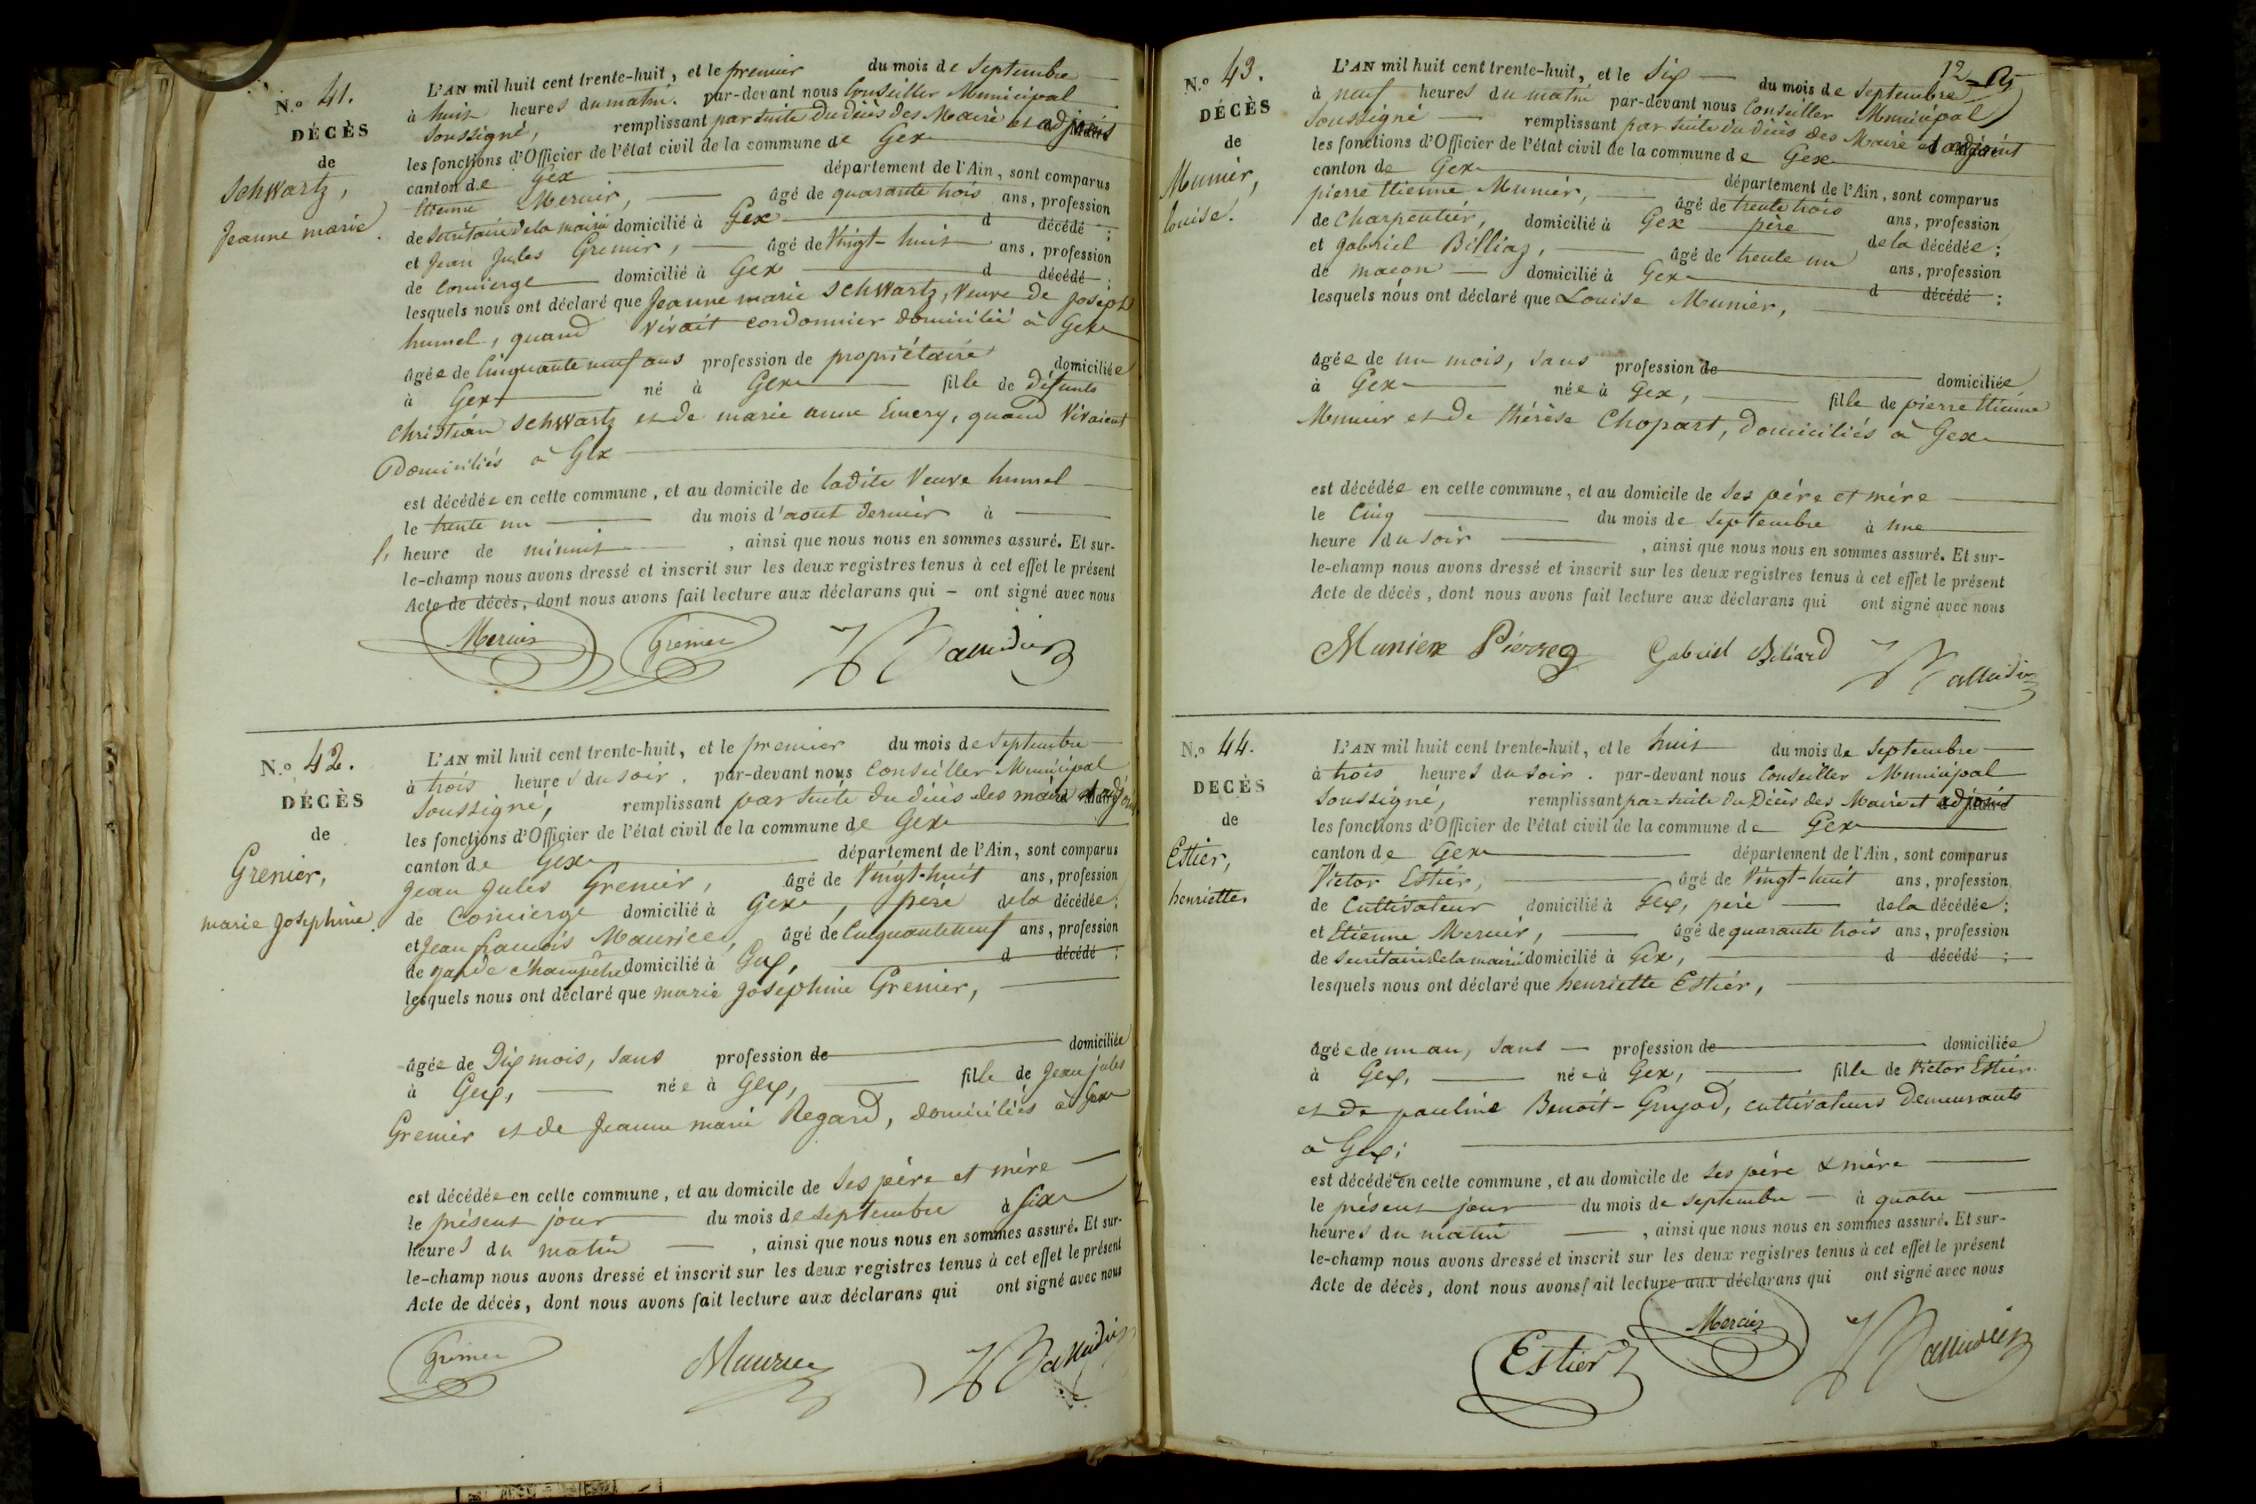 N.o 41.
DÉCÈS
de
Schwartz,
Jeanne marie.
L'AN mil huit cent trente-huit, et le premier du mois de Septembre
à huit heures du matin. par-devant nous Conseiller Municipal
Soussigné, remplissant par suite du décès des Maire et adjoint
les fonctions d'Officier de l'état civil de la commune de Gex
canton de Gex département de l'Ain, sont comparus
Etienne Mercier, âgé de quarante trois ans, profession
de Secrétaire de la mairie domicilié à Gex d décédé ;
et Jean Jules Grenier, âgé de Vingt-huit ans, profession
de Concierge domicilié à Gex d décédé ;
lesquels nous ont déclaré que Jeanne marie Schwartz, Veuve de Joseph
humel, quand Vivait cordonnier domicilié à Gex
âgée de Cinquante neuf ans profession de propriétaire domiciliée
à Gex né à Gex fille de défunts
Christian Schwartz et de marie anne Emery, quand Vivaient
Domiciliés à Gex
est décédée en cette commune, et au domicile de ladite Veuve humel
le trente un du mois d'aout dernier à
l' heure de minuit , ainsi que nous nous en sommes assuré. Et sur-
le-champ nous avons dressé et inscrit sur les deux registres tenus à cet effet le présent
Acte de décès, dont nous avons fait lecture aux déclarans qui – ont signé avec nous
Mercier Grenier
N.o 42.
DÉCÈS
de
Grenier,
marie Josephine.
L'AN mil huit cent trente-huit, et le premier du mois de Septembre
à trois heures du soir. par-devant nous Conseiller Municipal
Soussigné, remplissant par suite du décès des maire et adjoint
les fonctions d'Officier de l'état civil de la commune de Gex
canton de Gex département de l'Ain, sont comparus
Jean Jules Grenier, âgé de Vingt-huit ans, profession
de Concierge domicilié à Gex, père de la décédée ;
et Jean francois Maurice, âgé de Cinquante neuf ans, profession
de garde Champêtre domicilié à Gex, d décédé ;
lesquels nous ont déclaré que marie Josephine Grenier,
âgée de Dix mois, sans profession de domiciliée
à Gex, née à Gex, fille de Jean jules
Grenier et de Jeanne marie Regard, domiciliés à Gex
est décédée en cette commune, et au domicile de Ses père et mère
le présent jour du mois de septembre à six
heures du matin , ainsi que nous nous en sommes assuré. Et sur-
le-champ nous avons dressé et inscrit sur les deux registres tenus à cet effet le présent
Acte de décès, dont nous avons fait lecture aux déclarans qui ont signé avec nous
Grenier Maurice
12
N.o 43.
DÉCÈS
de
Munier,
Louise.
L'AN mil huit cent trente-huit, et le Six du mois de Septembre
à neuf heures du matin par-devant nous Conseiller Municipal
Soussigné remplissant par suite du décès des Maire et adjoint
les fonctions d'Officier de l'état civil de la commune de Gex
canton de Gex département de l'Ain, sont comparus
pierre Etienne Munier, âgé de trente trois ans, profession
de Charpentier, domicilié à Gex père de la décédée ;
et gabriel Billiaz, âgé de trente un ans, profession
de maçon domicilié à Gex d décédé ;
lesquels nous ont déclaré que Louise Munier,
âgée de un mois, sans profession de domiciliée
à Gex née à Gex, fille de pierre Etienne
Munier et de thérèse Chopart, Domiciliés à Gex
est décédée en cette commune, et au domicile de Ses père et mère
le Cinq du mois de septembre à une
heure du soir , ainsi que nous nous en sommes assuré. Et sur-
le-champ nous avons dressé et inscrit sur les deux registres tenus à cet effet le présent
Acte de décès, dont nous avons fait lecture aux déclarans qui ont signé avec nous
Munier Pierre Gabriel Biliard
N.o 44.
DECÈS
de
Estier,
henriette.
L'AN mil huit cent trente-huit, et le huit du mois de Septembre
à trois heures du soir. par-devant nous Conseiller Municipal
Soussigné, remplissant par suite du Décès des Maire et adjoint
les fonctions d'Officier de l'état civil de la commune de Gex
canton de Gex département de l'Ain, sont comparus
Victor Estier, âgé de Vingt-huit ans, profession
de Cultivateur domicilié à Gex, père de la décédée ;
et Etienne Mercier, âgé de quarante trois ans, profession
de Secrétaire de la mairie domicilié à Gex, d décédé ;
lesquels nous ont déclaré que henriette Estier,
âgée de un an, sans profession de domiciliée
à Gex, née à Gex, fille de Victor Estier
et de pauline Benoit-Guyod, cultivateurs demeurants
à Gex ;
est décédée en cette commune, et au domicile de Ses père & mère
le présent jour du mois de septembre à quatre
heures du matin , ainsi que nous nous en sommes assuré. Et sur-
le-champ nous avons dressé et inscrit sur les deux registres tenus à cet effet le présent
Acte de décès, dont nous avons fait lecture aux déclarans qui ont signé avec nous
Estier Mercier